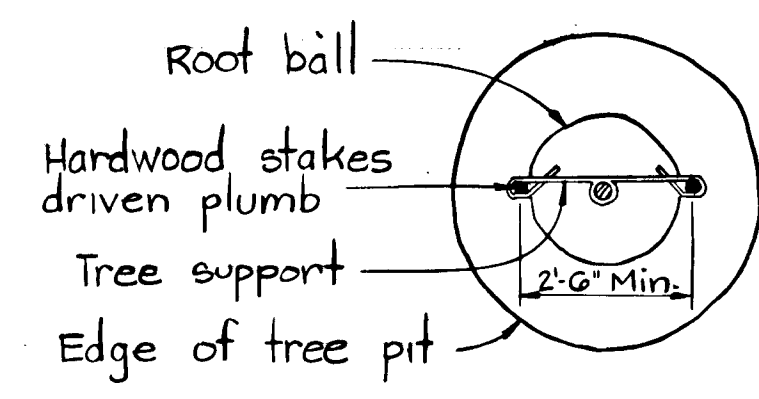 Root ball
Hardwood stakes
driven plumb
Tree support
2'-6" Min.
Edge of tree pit